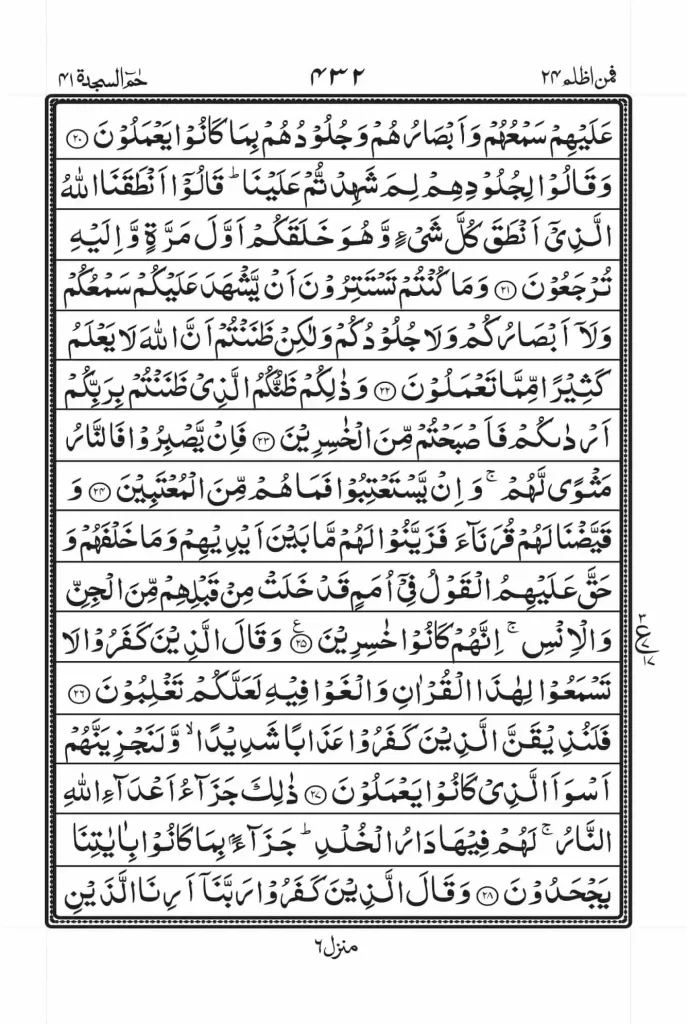 فمن اظلم ٢٤
٤٣٢
حٰمٓ السجدة ٤١
عَلَيْهِمْ سَمْعُهُمْ وَاَبْصَارُهُمْ وَجُلُوْدُهُمْ بِمَا كَانُوْا يَعْمَلُوْنَ ﴿۲۰﴾
وَقَالُوْا لِجُلُوْدِهِمْ لِمَ شَهِدْتُّمْ عَلَيْنَا ؕ قَالُوْۤا اَنْطَقَنَا اللّٰهُ
الَّذِىْۤ اَنْطَقَ كُلَّ شَىْءٍ وَّهُوَ خَلَقَكُمْ اَوَّلَ مَرَّةٍ وَّاِلَيْهِ
تُرْجَعُوْنَ ﴿۲۱﴾ وَمَا كُنْتُمْ تَسْتَتِرُوْنَ اَنْ يَّشْهَدَ عَلَيْكُمْ سَمْعُكُمْ
وَلَاۤ اَبْصَارُكُمْ وَلَا جُلُوْدُكُمْ وَلٰكِنْ ظَنَنْتُمْ اَنَّ اللّٰهَ لَا يَعْلَمُ
كَثِيْرًا مِّمَّا تَعْمَلُوْنَ ﴿۲۲﴾ وَذٰلِكُمْ ظَنُّكُمُ الَّذِىْ ظَنَنْتُمْ بِرَبِّكُمْ
اَرْدٰىكُمْ فَاَصْبَحْتُمْ مِّنَ الْخٰسِرِيْنَ ﴿۲۳﴾ فَاِنْ يَّصْبِرُوْا فَالنَّارُ
مَثْوًى لَّهُمْ ۚ وَاِنْ يَّسْتَعْتِبُوْا فَمَا هُمْ مِّنَ الْمُعْتَبِيْنَ ﴿۲۴﴾ وَ
قَيَّضْنَا لَهُمْ قُرَنَآءَ فَزَيَّنُوْا لَهُمْ مَّا بَيْنَ اَيْدِيْهِمْ وَمَا خَلْفَهُمْ وَ
حَقَّ عَلَيْهِمُ الْقَوْلُ فِىْۤ اُمَمٍ قَدْ خَلَتْ مِنْ قَبْلِهِمْ مِّنَ الْجِنِّ
وَالْاِنْسِ ۚ اِنَّهُمْ كَانُوْا خٰسِرِيْنَ ﴿۲۵﴾ ع وَقَالَ الَّذِيْنَ كَفَرُوْا لَا
٣ ع ٧ ١٧
تَسْمَعُوْا لِهٰذَا الْقُرْاٰنِ وَالْغَوْا فِيْهِ لَعَلَّكُمْ تَغْلِبُوْنَ ﴿۲۶﴾
فَلَنُذِيْقَنَّ الَّذِيْنَ كَفَرُوْا عَذَابًا شَدِيْدًا ۙ وَّلَنَجْزِيَنَّهُمْ
اَسْوَاَ الَّذِىْ كَانُوْا يَعْمَلُوْنَ ﴿۲۷﴾ ذٰلِكَ جَزَآءُ اَعْدَآءِ اللّٰهِ
النَّارُ ۚ لَهُمْ فِيْهَا دَارُ الْخُلْدِ ؕ جَزَآءًۢ بِمَا كَانُوْا بِاٰيٰتِنَا
يَجْحَدُوْنَ ﴿۲۸﴾ وَقَالَ الَّذِيْنَ كَفَرُوْا رَبَّنَاۤ اَرِنَا الَّذَيْنِ
منزل ٦